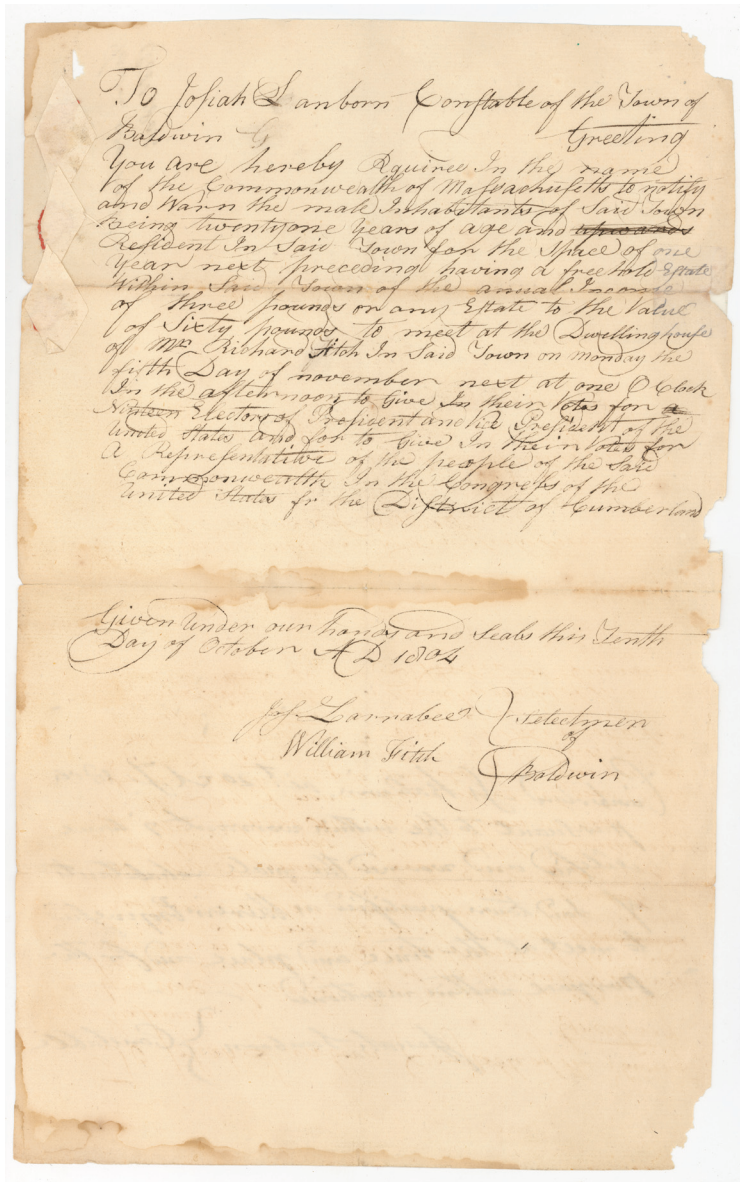 To Josiah Sanborn Constable of the Town of
Baldwin G Greeting
You are hereby Rquiree In the name
of the Commonwealth of Massachusetts to notify
and Warn the male Inhabitants of Said Town
Being twentyone years of age and upwards
Resident In Said Town for the Space of one
year next preceeing having a free hold Estate
Within Said Town of the annual Income
of three pounds or any Estate to the Value
of Sixty pounds to meet at the Dwelling house
of Mr Richard Fitch In Said Town on monday the
fifth Day of november next at one O Clock
In the afternoon to Give In their Votes for a
Ninteen Electors of President and Vice President of the
United States and for to Give In their Votes for
A Representitive of the people of the Said
Commonwealth In the Congress of the
United States fr the District of Cumberland
Given Under our hands and Seals this Tenth
Day of October A D 1804
Jos Larrabee Selectmen
of
William Fitch
Baldwin